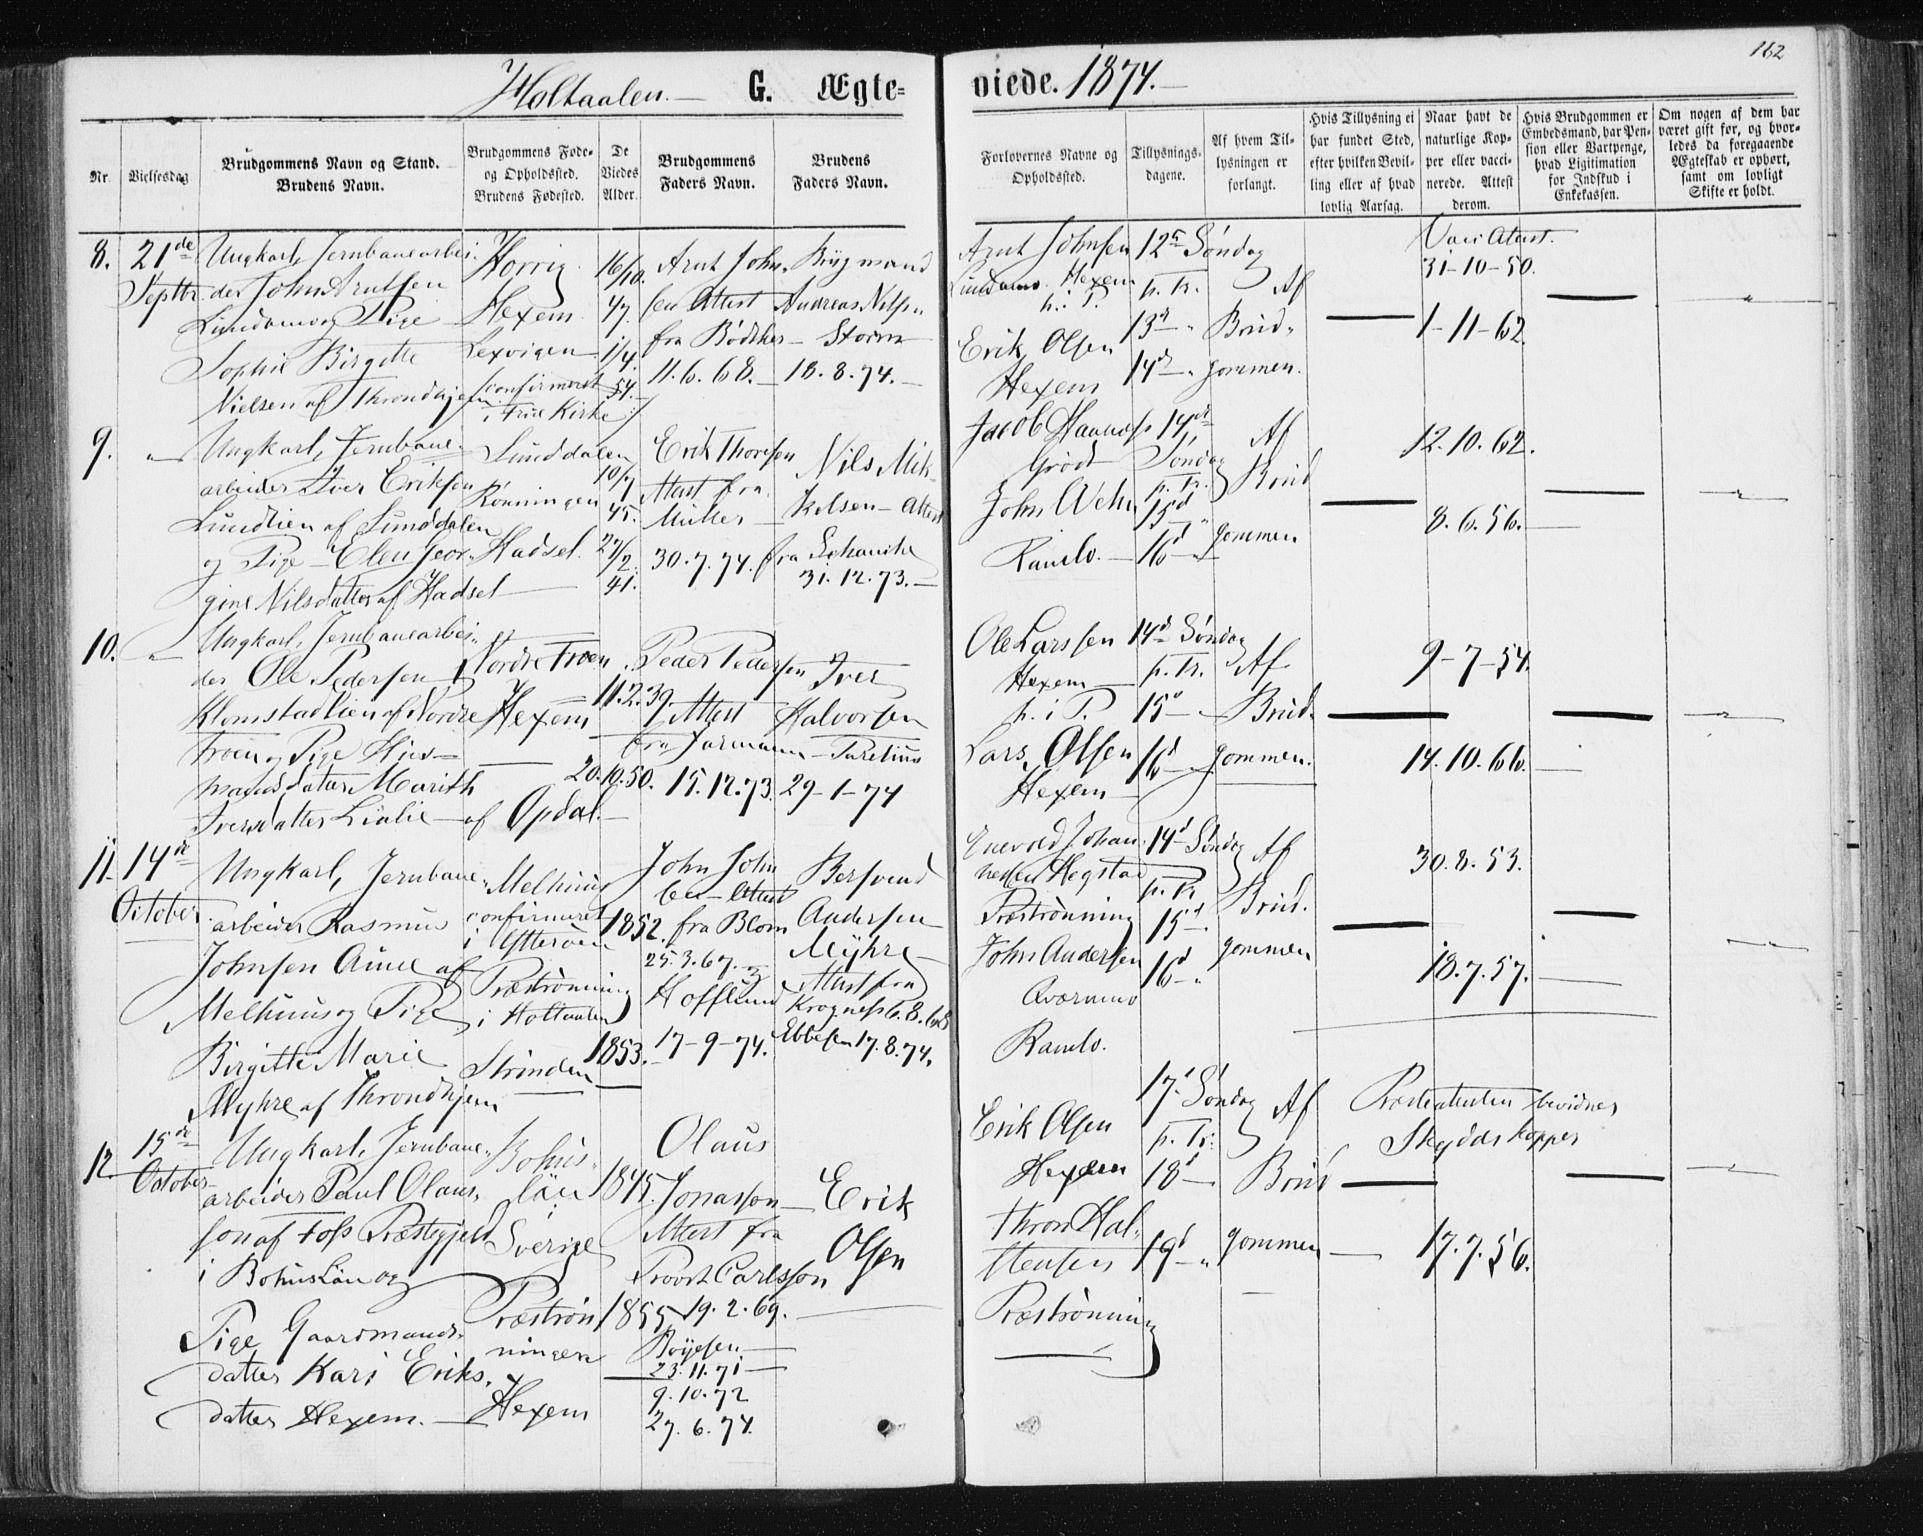 162
Holtaalen. — G. Ægteviede. 1874. —
Nr.
Vielsesdag
Brudgommens Navn og Stand.
Brudens Navn.
Brudgommens Føde-
og Opholdssted.
Brudens Fødested.
De
Viedes
Alder.
Brudgommens
Faders Navn.
Brudens
Faders Navn.
Forlovernes Navne og
Opholdssted.
Tillysnings-
dagene.
Af hvem Til-
lysningen er
forlangt.
Hvis Tillysning ei
har fundet Sted,
efter hvilken Bevil-
ling eller af hvad
lovlig Aarsag.
Naar havt de
naturlige Kop-
per eller vacci-
nerede. Attest
derom.
Hvis Brudgommen er
Embedsmand, har Pen-
sion eller Vartpenge,
hvad Ligitimation
for Indskud i
Enkekassen.
Om nogen af dem har
været gift før, og hvor-
ledes da foregaaende
Ægteskab er ophørt,
samt om lovligt
Skifte er holdt.
8.
21de
Septbr.
Ungkarl, Jernbanearbei-
der John Arntsen
Lundamo og Pige
Sophie Birgitte
Nielsen af Throndhjem
Horrig
Hexem
Lexvigen
confirmeret
i Frue Kirke
16/10.
47.
1/4.
54.
Arnt John-
sen Attest
fra Bødtker
11.6.68. —
Bygmand
Andreas Nilsen
Storm
18.8.74. —
Arnt Johnsen
Lundamo Hexem
p. i T.
Erik Olsen
Hexem
12te Søndag
p. Tr.
13d — "
14d — "
Af
Brud-
gommen.
Vacc. Attest.
31-10-50.
1-11-62.
9.
"
Ungkarl, Jernbane-
arbeider Iver Eriksen
Lundlien af Sunddalen
og Pige — Olen Geor-
gine Nilsdatter af Hadsel
Sunddalen
Rønningen
Hadsel.
10/7
45.
27/2.
41.
Erik Thoresen
Attest fra
Müller
30.7.74.
Nils Mik-
kelsen — Attest
fra Schanche
31.12.73. —
Jacob Hanness
Grødt
John Wehn
Ramlo. —
14de
Søndag
p. Tr.
15d "
16d — "
Af
Brud
gommen
12.10.62.
8.6.56. —
10.
"
Ungkarl, Jernbanearbei-
der Ole Pedersen
Klomstadlien af Nordre
Froen og Pige Hus-
mandsdatter Marith
Iversdatter Lialie — af Opdal. —
Nordre Froen
Hexem
11.2.39
20.10.50.
Peder Pedersen
Attest
fra Jarmann
15.12.73.
Iver
Halvorsen
Parelius
29-1-74
Ole Larssen
Hexem
p. i T.
Lars Olsen
Hexem —
14d Søndag
p. Tr.
15d — "
16d — "
Af
Brud-
gommen.
9-7-54.
14.10.66. —
11.
14de
October.
Ungkarl, Jernbane-
arbeider Rasmus
Johnsen Aune af
Melhuus og Pige
Birgitte Marie
Myhre af Throndhjem
Melhuus
confirmeret
i Ytterøen
Præstrønning
i Holtaalen
Strinden
1852.
1853.
John John
sen — Attest
fra Blom
25.3.67. og
Hofflund
17-9-74.
Bersvend
Andersen
Myhre
Attest fra
Krogness 6.8.68
Ebbesen 17.8.74.
Enevold Johan-
nessen Hegstad
Præstrønning
John Andersen
Qværnmo
Ramlo.
14d Søndag
p. Tr.
15d — "
16d — "
Af
Brud-
gommen
30.8.53.
18.7.57. —
12.
15de
October
Ungkarl, Jernbane-
arbeider Paul Olaus-
son af Foss Præstegjeld
i Bohus Län og
Pige Gaardmands-
datter Kari Eriks-
datter Hexem. —
Bohus-
län
i
Sverige
Præstrøn
ningen
Hexem
1845.
1855
Olaus
Jonasson —
Attest fra
Provst Carlsson
19.2.69.
Boyesen
23.11.71 —
9.10.72
27.6.74.
Erik
Olsen
Erik Olsen
Hexem
Thron Hal-
stensen
Præstrønning
17d Søndag
p. Tr.
18d —
19d — "
Af
Brud
gommen —
Præsteattesten bevidner
Skydds kopper
17.7.56.